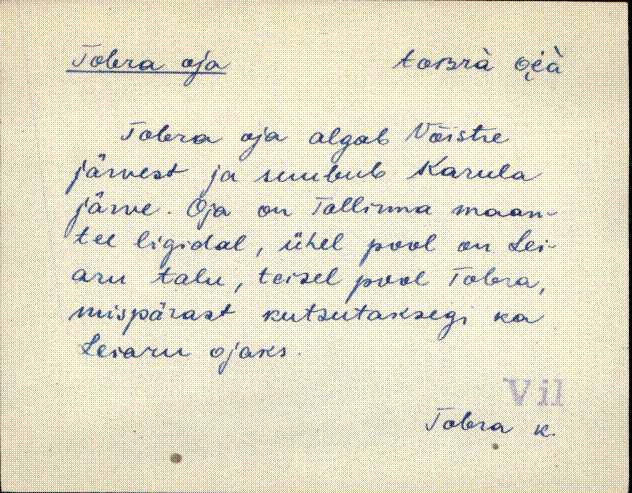 Tobra oja toʙrà oi̯à
Tobra oja algab Võistre
järvest ja suubub Karula
järve. Oja on Tallinna maan-
tee ligidal, ühel pool on Lei-
aru talu, teisel pool Tobra,
mispärast kutsutaksegi ka
Leiaru ojaks.
Vil
Tobra k.